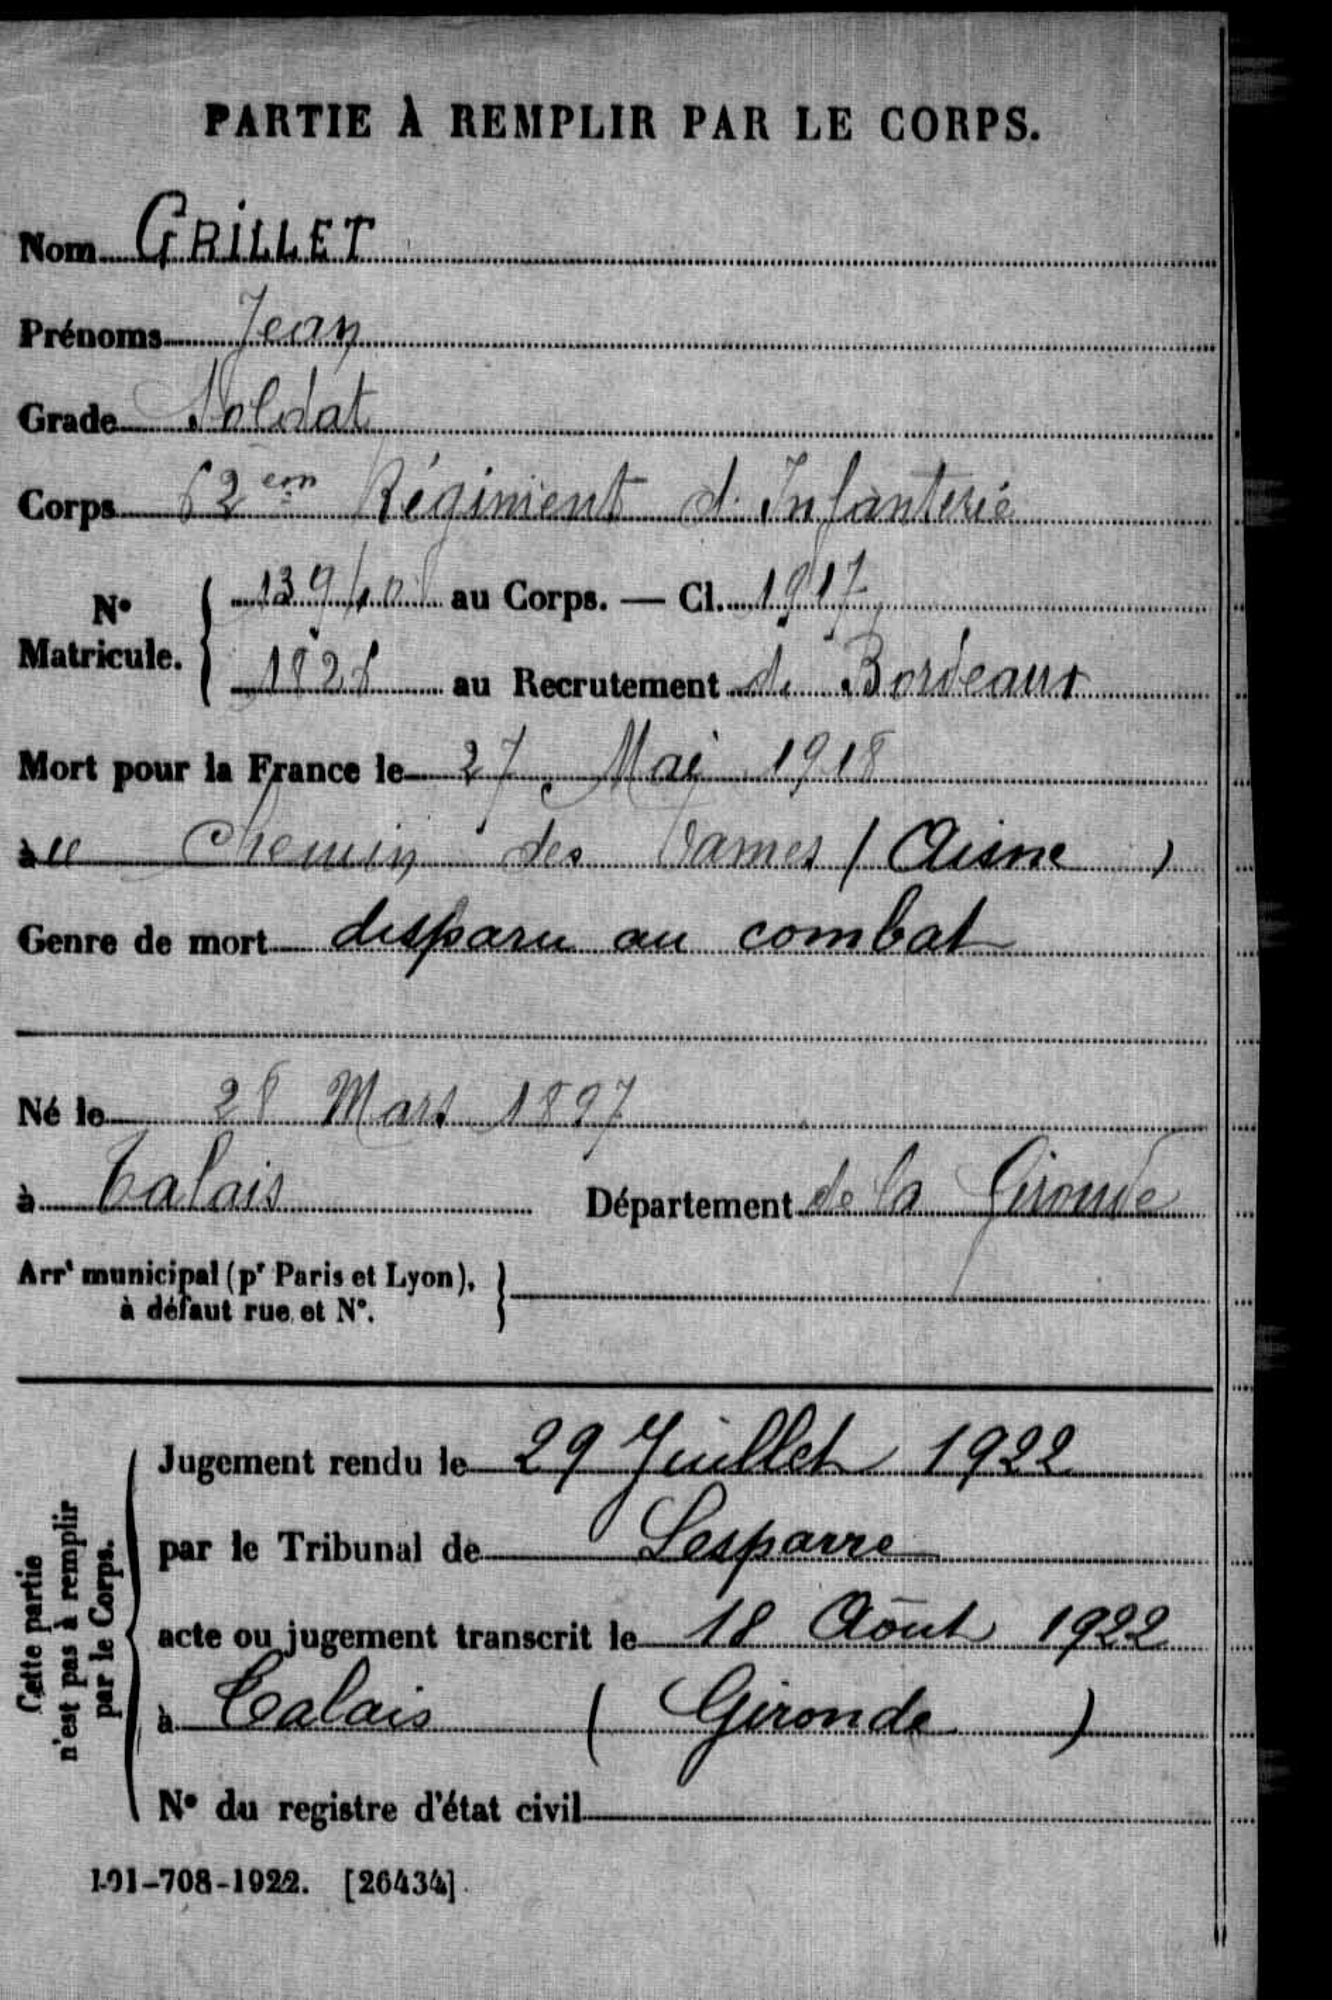 PARTIE À REMPLIR PAR LE CORPS.
Nom GRILLET
Prénoms Jean
Grade Soldat
Corps 62em Régiment d'Infanterie
N° Matricule. au Corps. — Cl. 1917
1828 au Recrutement de Bordeaux
Mort pour la France le 27 Mai 1918
à Chemin des Dames (Aisne)
Genre de mort disparu au combat
Né le 28 Mars 1897
à Talais Département de la Gironde
Arrt municipal (pr Paris et Lyon),
à défaut rue et N°.
Cette partie
n'est pas à remplir
par le Corps.
Jugement rendu le 29 Juillet 1922
par le Tribunal de Lesparre
acte ou jugement transcrit le 18 Août 1922
à Talais (Gironde)
N° du registre d'état civil
101-708-1922. [26434]